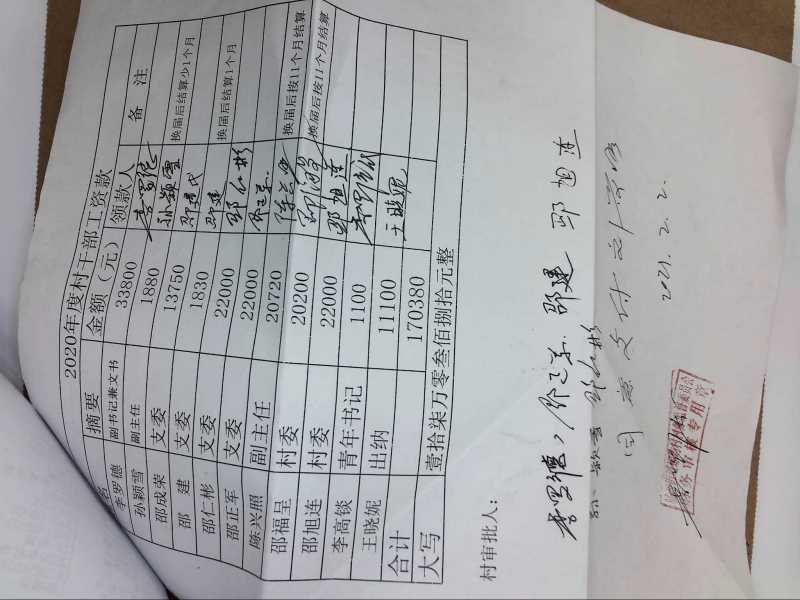 2020年度村干部工资款
名 摘要 金额（元） 领款人 备 注
李罗德 副书记兼文书 33800 李罗德
孙颖雪 副主任 1880 孙颖雪 换届后结算少1个月
邵成荣 支委 13750
邵 建 支委 1830 邵建 换届后结算1个月
邵仁彬 支委 22000 邵仁彬
邵正军 支委 22000
陈兴照 副主任 20720 换届后按11个月结算
邵福呈 村委 20200 换届后按11个月结算
邵旭连 村委 22000 邵旭连
李高锬 青年书记 1100
王晓妮 出纳 11100 王晓妮
合计 170380
大写 壹拾柒万零叁佰捌拾元整
村审批人：
李罗德 邵建 邵旭连
邵仁彬
同意支付
2021.2.2.
专用章